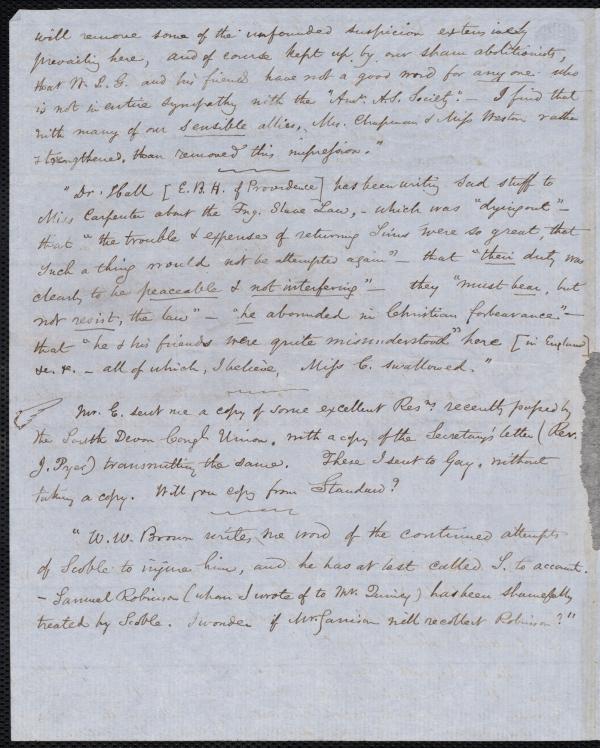 will remove some of the unfounded suspicion extensively
prevailing here, and of course kept up by our sham abolitionists,
that W. L. G. and his friends have not a good word for any one who
is not in entire sympathy with the "Amn. A.S. Society." — I find that
with many of our sensible allies, Mrs. Chapman & Miss Weston rather
strengthened, than removed this impression."
"Dr. Hall [E. B. H. of Providence] has been writing sad stuff to
Miss Carpenter about the Fug. Slave Law, - which was "dying out" —
that "the trouble & expense of returning Sims were so great, that
such a thing would not be attempted again" — that "their duty was
clearly to be peaceable & not interfering" — they "must bear, but
not resist, the law" — "he abounded in Christian forbearance" —
that "he & his friends were quite misunderstood" here [in England]
&c. &c. — all of which, I believe, Miss C. swallowed."
Mr. E. sent me a copy of some excellent Resns recently passed by
the South Devon Congl Union, with a copy of the Secretary's letter (Rev.
J. Pyer) transmitting the same. These I sent to Gay, without
taking a copy. Will you copy from Standard?
"W. W. Brown writes me word of the continued attempts
of Scoble to injure him, and he has at last called S. to account.
- Samuel Robinson (whom I wrote of to Mr. Quincy) has been shamefully
treated by Scoble. I wonder if Mr. Garrison will recollect Robinson?"